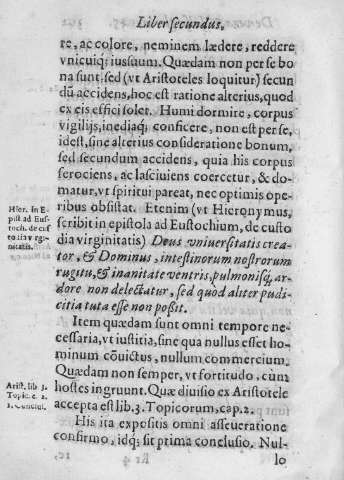 Liber secundus.
re, ac colore, neminem lædere, reddere
vnicuiq; ius suum. Quædam non per se bo
na sunt, sed (vt Aristoteles loquitur) secun
dũ accidens, hoc est ratione alterius, quod
ex eis effici solet. Humi dormire, corpus
vigilijs, inediaq; conficere, non est per se,
id est, sine alterius consideratione bonum,
sed secundum accidens, quia his corpus
ferociens, ac lasciuiens coercetur, & do-
matur, vt spiritui pareat, nec optimis ope
ribus obsistat. Etenim (vt Hieronymus,
scribit in epistola ad Eustochium, de custo
dia virginitatis) Deus vniuersitatis crea-
tor, & Dominus, intestinorum nostrorum
rugitu, & inanitate ventris, pulmonisq; ar-
dore non delectatur, sed quòd aliter pudi-
citia tuta esse non possit.
Hier. in E-
pist. ad Eus-
toch. de cus
todia virgi-
nitatis.
Item quædam sunt omni tempore ne-
cessaria, vt iustitia, sine qua nullus esset ho-
minum cõuictus, nullum commercium.
Quædam non semper, vt fortitudo, cùm
hostes ingruunt. Quæ diuisio ex Aristotele
accepta est lib. 3. Topicorum, cap. 2.
Arist. lib. 3.
Topic. c. 2.
1. Conclus.
His ita expositis omni asseueratione
confirmo, idq; sit prima conclusio. Nul-
lo